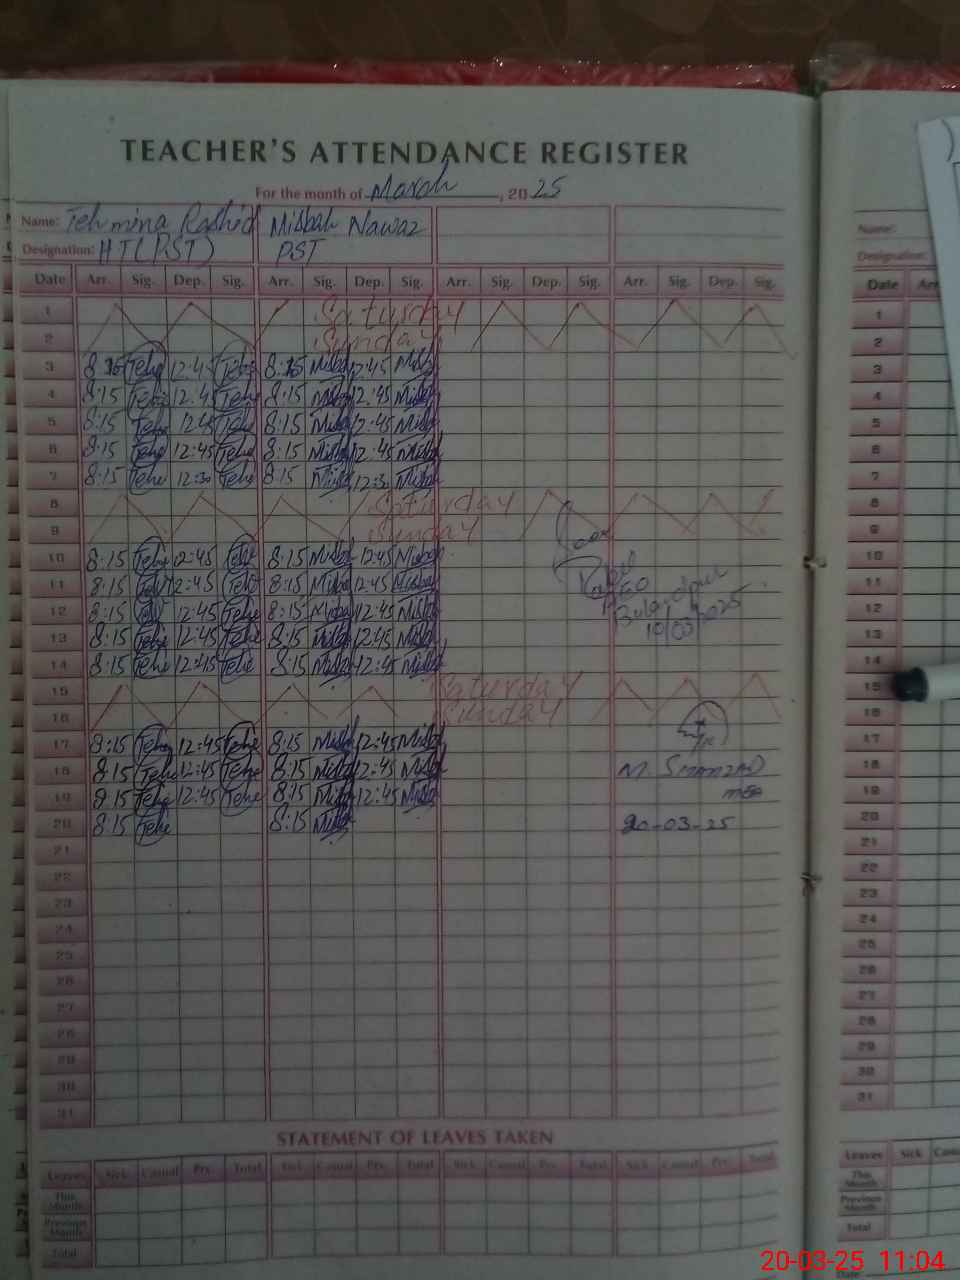 TEACHER'S ATTENDANCE REGISTER
For the month of March, 2025
Name: Tehmina Rashid Misbah Nawaz
Designation: HT(PST) PST
Date Arr. Sig. Dep. Sig. Arr. Sig. Dep. Sig. Arr. Sig. Dep. Sig. Arr. Sig. Dep. Sig.
1 Saturday
2 Sunday
3 8:15 Tehe 12:45 Tehe 8:15 Misba 12:45 Misba
4 8:15 Tehe 12:45 Tehe 8:15 Misba 12:45 Misba
5 8:15 Tehe 12:45 Tehe 8:15 Misba 12:45 Misba
6 8:15 Tehe 12:45 Tehe 8:15 Misba 12:45 Misba
7 8:15 Tehe 12:30 Tehe 8:15 Misba 12:30 Misba
8 Saturday
9 Sunday
Seen
10 8:15 Tehe 12:45 Tehe 8:15 Misba 12:45 Misba
11 8:15 Tehe 12:45 Tehe 8:15 Misba 12:45 Misba
12 8:15 Tehe 12:45 Tehe 8:15 Misba 12:45 Misba
10/03/2025
13 8:15 Tehe 12:45 Tehe 8:15 Misba 12:45 Misba
14 8:15 Tehe 12:45 Tehe 8:15 Misba 12:45 Misba
15 Saturday
16 Sunday
17 8:15 Tehe 12:45 Tehe 8:15 Misba 12:45 Misba
18 8:15 Tehe 12:45 Tehe 8:15 Misba 12:45 Misba M. SHAHZAD
19 8:15 Tehe 12:45 Tehe 8:15 Misba 12:45 Misba MEA
20 8:15 Tehe 8:15 Misba 20-03-25
21
22
23
24
25
26
27
28
29
30
31
STATEMENT OF LEAVES TAKEN
Leaves Sick Casual Prv. Total Sick Casual Prv. Total Sick Casual Prv. Total Sick Casual Prv. Total
This Month
Previous Month
Total
Name:
Designation:
Date Arr
1
2
3
4
5
6
7
8
9
10
11
12
13
14
15
16
17
18
19
20
21
22
23
24
25
26
27
28
29
30
31
Leaves Sick
This Month
Previous Month
Total
20-03-25 11:04